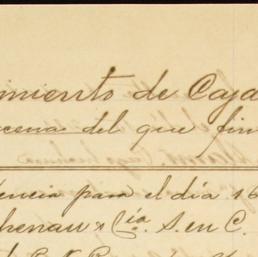 imiento de Caja
cena del que fin
encia para el día 16
henau & Cía. S. en C.